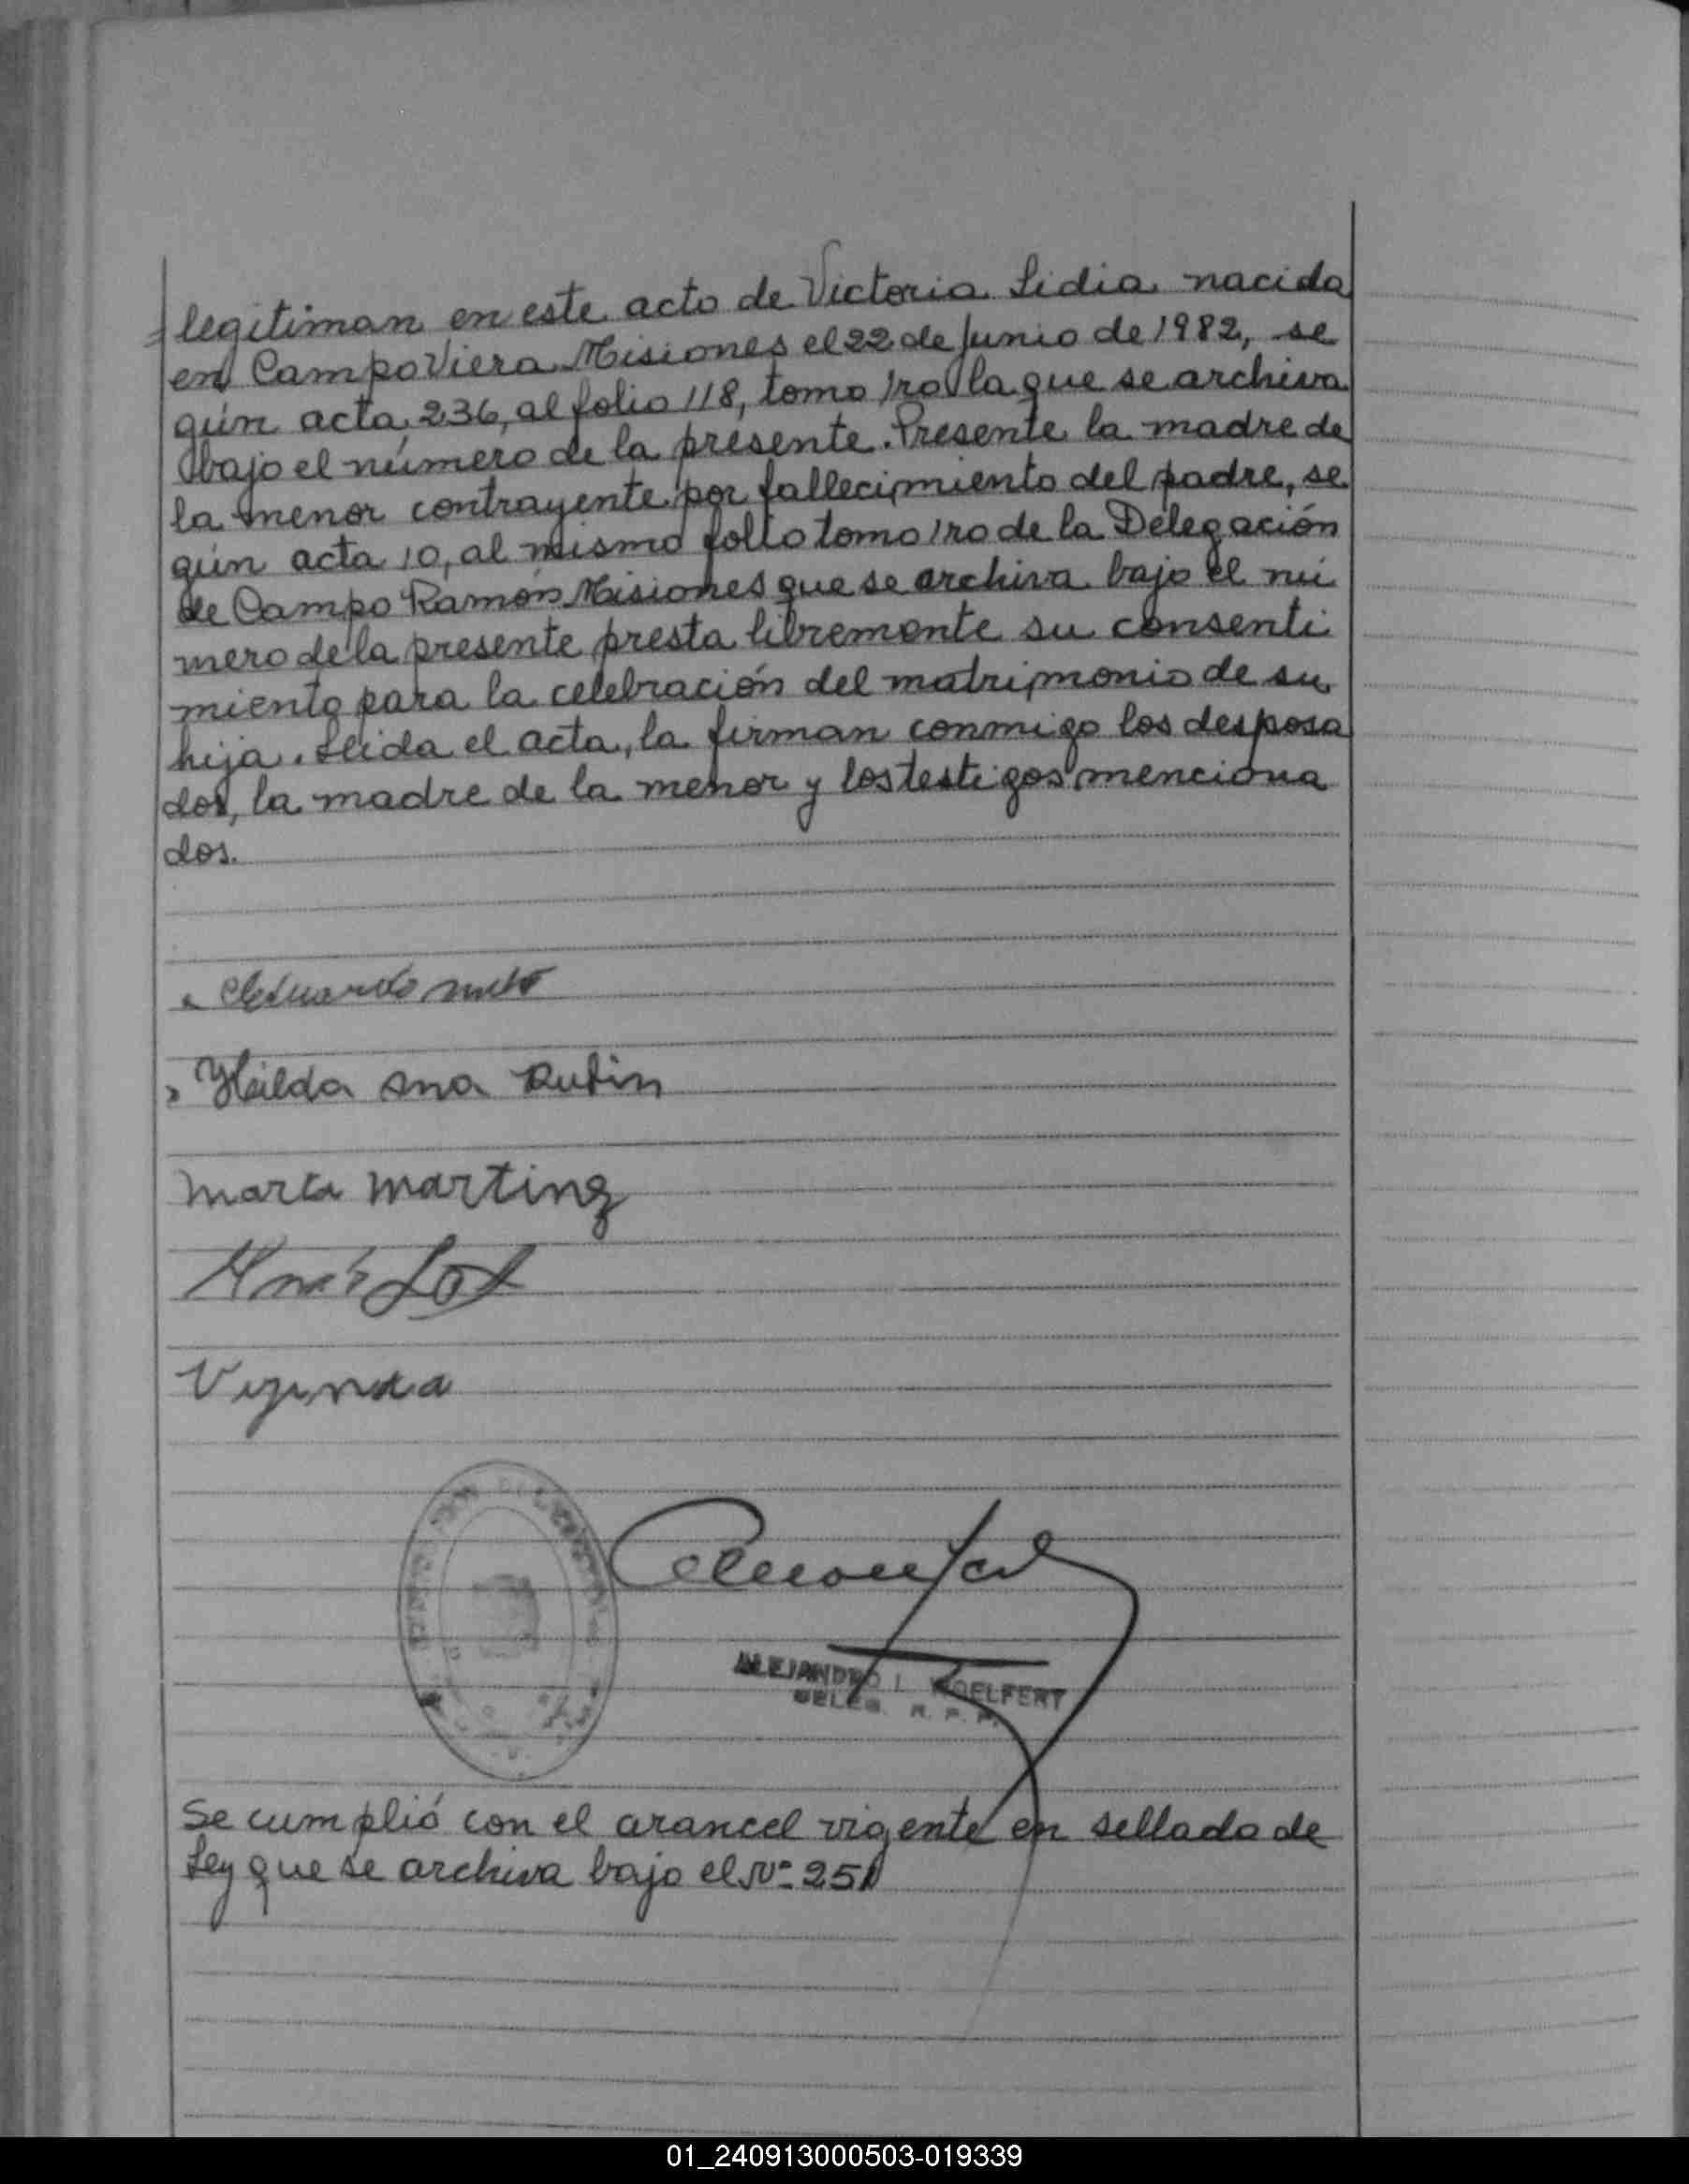 legitiman en este acto de Victoria Lidia nacida
en Campo Viera Misiones el 22 de Junio de 1982, se
gún acta 236, al folio 118, tomo 1ro la que se archiva
bajo el número de la presente. Presente la madre de
la menor contrayente por fallecimiento del padre, se
gún acta 10, al mismo folio tomo 1ro de la Delegación
de Campo Ramón Misiones que se archiva bajo el nú
mero de la presente presta libremente su consenti
miento para la celebración del matrimonio de su
hija. Leida el acta, la firman conmigo los desposa
dos, la madre de la menor y los testigos menciona
dos.
Eduardo
Hilda Ana Rubin
Marta Martinz
ALEJANDRO
Se cumplió con el arancel vigente en sellado de
Ley que se archiva bajo el Nº 251
01_240913000503-019339